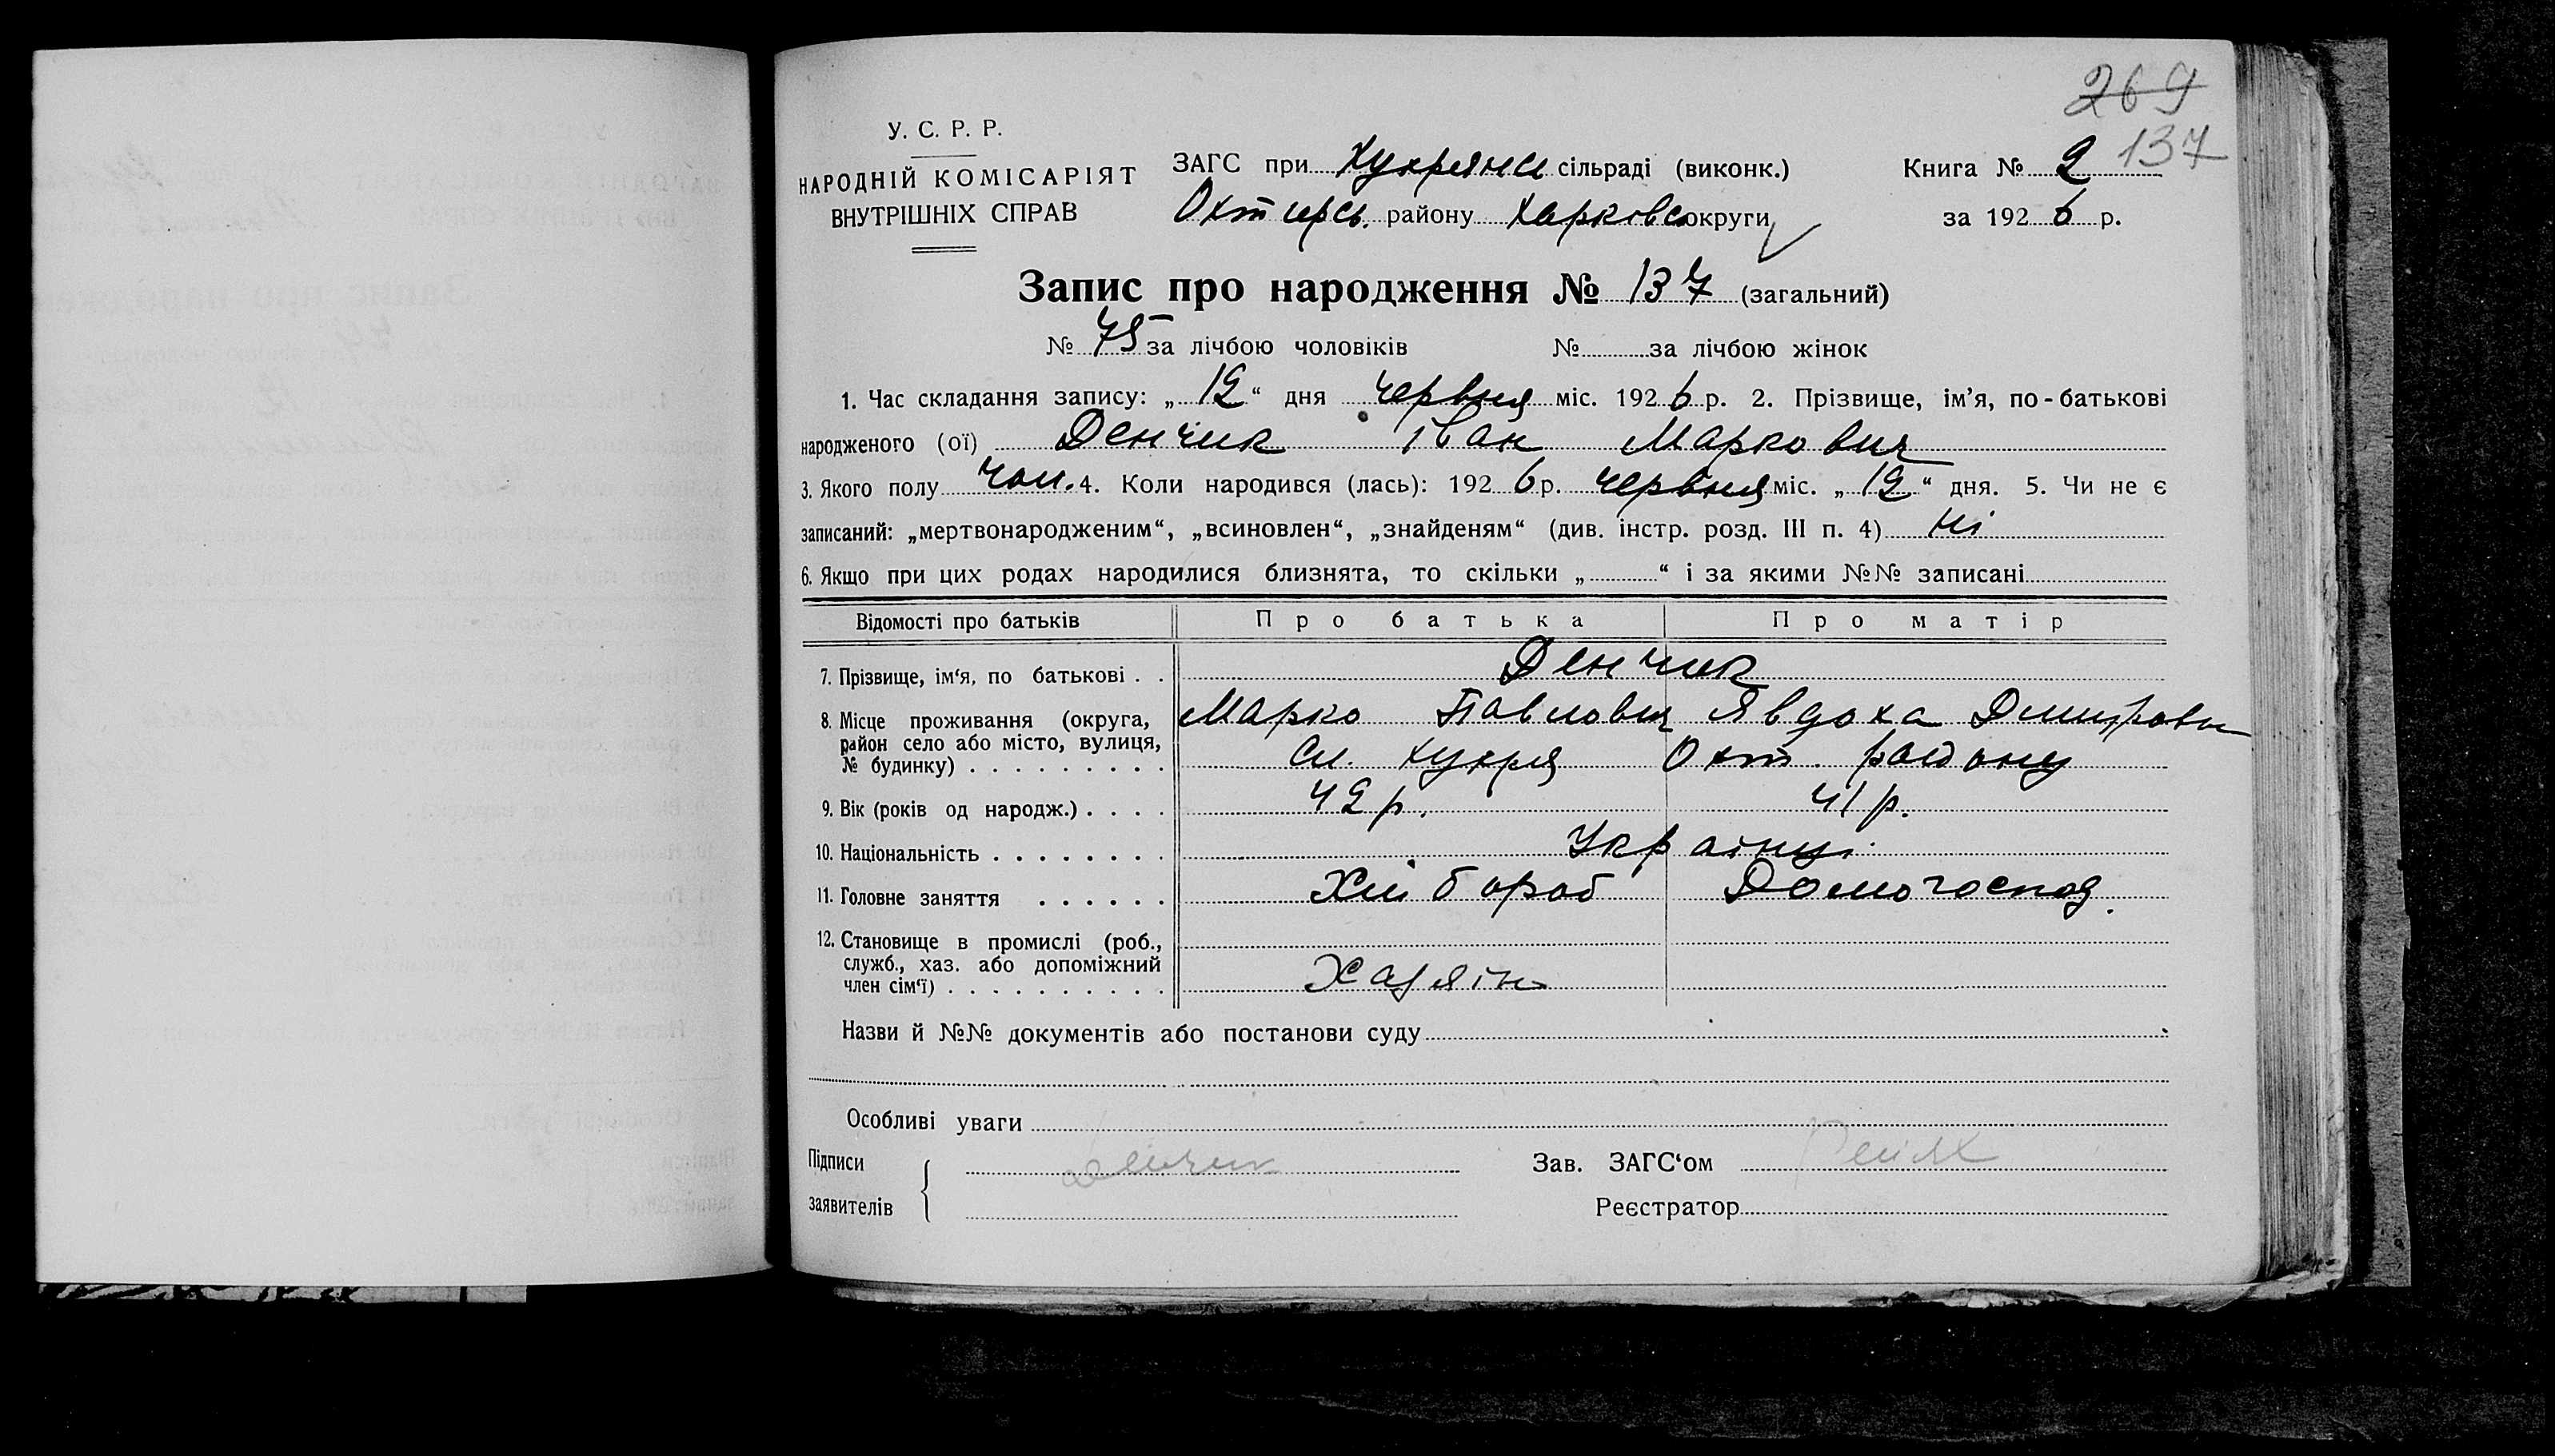 269
137
У. С. Р. Р.
НАРОДНІЙ КОМІСАРІЯТ
ВНУТРІШНІХ СПРАВ
ЗАГС при Хухрянсі сільраді (виконк.)
Охтирсь. району Харківс округи
Книга № 2
за 1926 р.
Запис про народження № 137 (загальний)
№ 75 за лічбою чоловіків № за лічбою жінок
1. Час складання запису: „12“ дня червня міс. 1926 р. 2. Прізвище, ім’я, по-батькові
народженого (ої) Денчик Іван Маркович
3. Якого полу чол. 4. Коли народився (лась): 1926 р. червня міс. „12“ дня. 5. Чи не є
записаний: „мертвонародженим“, „всиновлен“, „знайденям“ (див. інстр. розд. III п. 4) Ні
6. Якщо при цих родах народилися близнята, то скільки „ “ і за якими №№ записані
Відомості про батьків Про батька Про матір
7. Прізвище, ім‘я, по батькові . . Денчик
8. Місце проживання (округа, Марко Павлович Явдоха Дмитровн
район село або місто, вулиця,
№ будинку) . . . . . . . . . Сл. Хухря Охт. району
9. Вік (років од народж.) . . . . 42 р. 41 р.
10. Національність . . . . . . . . Українці
11. Головне заняття . . . . . . Хлібороб Домогоспод.
12. Становище в промислі (роб.,
служб., хаз. або допоміжний
член сім‘ї) . . . . . . . . . . Хазяїн
Назви й №№ документів або постанови суду
Особливі уваги
Підписи
заявителів
Денчик
Зав. ЗАГС‘ом
Реєстратор